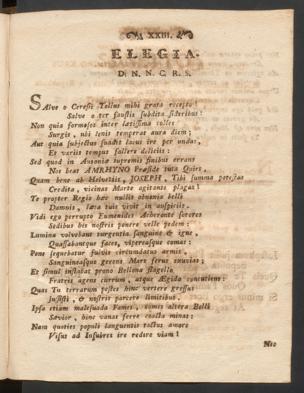 XXIII.
ELEGIA.
D. N. N. C. R. S.
SAlve o Ceresio Tellus mihi grata recepto!
Salve o ter faustis subdita sideribus!
Non quia formosos inter lætissima colles
Surgis, ubi lenis temperat aura diem;
Aut quia subjectus suadet locus ire per undas,
Et variis tempus fallere deliciis:
Sed quod in Ausoniæ supremis finibus errans
Hoc beat AMRHYNO Præside tuta Quies,
Quam bene ab Helvetiis, JOSEPH, Tibi summa potestas
Credita, vicinas Marte agitante plagas!
Te propter Regio hæc nullis obnoxia belli
Damnis, læta tuis vivit in auspiciis.
Vidi ego perrupto Eumenides Acheronte sorores
Sedibus his nostris ponere velle pedem:
Lumina volvebant turgentia sanguine & igne,
Quassabantque faces, vipereasque comas:
Pone sequebatur fulvis circumdatus armis,
Sanguineasque gerens Mars ferus exuvias;
Et simul insistat prono Bellona flagello
Fratris agens currum, atque Ægida concutiens:
Quas Tu terrarum pestes hinc vertere gressus
Jussisti, & nostris parcere limitibus.
Ipsa etiam malesuada Fames, comes altera Belli
Sævior, hinc vanas ferre coacta minas:
Nam quoties populi languentis tactus amore
Visus ad Insubres ire redire viam!
Nec